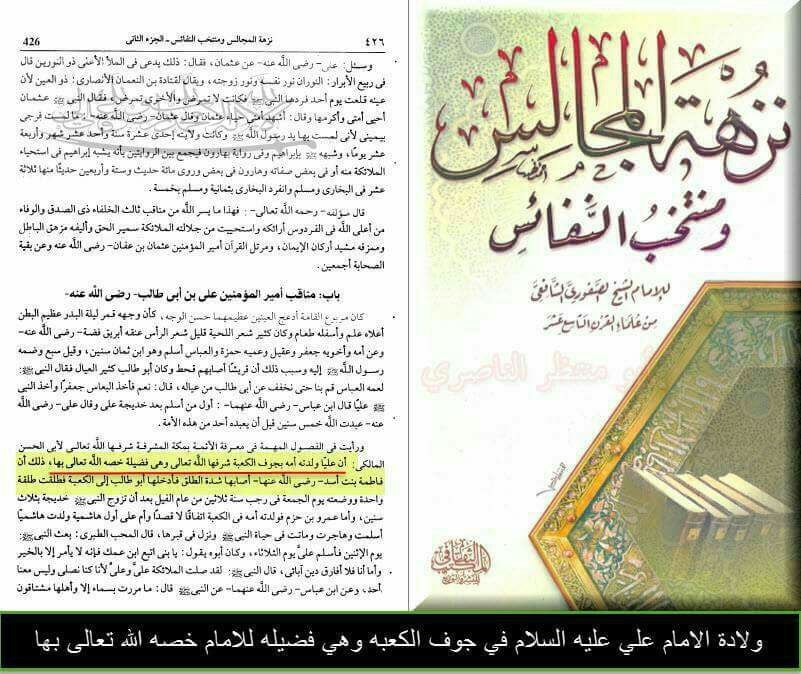 ٤٢٦
نزهة المجالس ومنتخب النفائس - الجزء الثانى
426
وسئل: على - رضى الله عنه - عن عثمان، فقال: ذلك يدعى فى الملأ الأعلى ذو النورين قال
فى ربيع الأبرار: النوران نور نفسه ونور زوجته، ويقال لقتادة بن النعمان الأنصارى: ذو العين لأن
عينه قلعت يوم أحد فردها النبى ﷺ فكانت لا تمرض والأخرى تمرض، فقال النبى ﷺ عثمان
أحيى أمتى وأكرمها وقال: أشهد أمتى حياء عثمان وقال عثمان - رضى الله عنه - ما لمست فرجى
بيمينى لأنى لمست بها يد رسول الله ﷺ وكانت ولايته إحدى عشرة سنة وأحد عشر شهر وأربعة
عشر يومًا، وشبهه ﷺ بإبراهيم وفى رواية بهارون فيجمع بين الروايتين بأنه يشبه إبراهيم فى استحياء
الملائكة منه أو فى بعض صفاته وهارون فى بعض وروى مائة حديث وستة وأربعين حديثًا منها ثلاثة
عشر فى البخارى ومسلم وانفرد البخارى بثمانية ومسلم بخمسة.
قال مؤلفه - رحمه الله تعالى -: فهذا ما يسر الله من مناقب ثالث الخلفاء ذى الصدق والوفاء
من أعلى الله فى الفردوس أرائكه واستحييت من جلالته الملائكة سمير الحق وأليفه مزهق الباطل
وممزقه مشيد أركان الإيمان، ومرتل القرآن أمير المؤمنين عثمان بن عفان - رضى الله عنه وعن بقية
الصحابة أجمعين.
باب: مناقب أمير المؤمنين على بن أبى طالب - رضى الله عنه -
كان مربوع القامة أدعج العينين عظيمهما حسن الوجه، كأن وجهه قمر ليلة البدر عظيم البطن
أعلاه علم وأسفله طعام وكان كثير شعر اللحية قليل شعر الرأس عنقه أبريق فضة - رضى الله عنه -
وعن أمه وأخويه جعفر وعقيل وعميه حمزة والعباس أسلم وهو ابن ثمان سنين، وقيل سبع وضمه
رسول الله ﷺ إليه وسبب ذلك أن قريشًا أصابهم قحط وكان أبو طالب كثير العيال فقال النبى ﷺ:
لعمه العباس قم بنا حتى نخفف عن أبى طالب من عياله، قال: نعم فأخذ العباس جعفرًا وأخذ النبى
ﷺ عليًا قال ابن عباس - رضى الله عنهما -: أول من أسلم بعد خديجة على وقال على - رضى الله
عنه - عبدت الله خمس سنين قبل أن يعبده أحد من هذه الأمة.
ورأيت فى الفصول المهمة فى معرفة الأئمة بمكة المشرفة شرفها الله تعالى لأبى الحسن
المالكى: أن عليًا ولدته أمه بجوف الكعبة شرفها الله تعالى وهى فضيلة خصه الله تعالى بها، ذلك أن
فاطمة بنت أسد - رضى الله عنها - أصابها شدة الطلق فأدخلها أبو طالب إلى الكعبة فطلقت طلقة
واحدة ووضعته يوم الجمعة فى رجب سنة ثلاثين من عام الفيل بعد أن تزوج النبى ﷺ خديجة بثلاث
سنين، وأما عمرو بن حزم فولدته أمه فى الكعبة اتفاقًا لا قصدًا وأم على أول هاشمية ولدت هاشميًا
أسلمت وهاجرت وماتت فى حياة النبى ﷺ ونزل فى قبرها، قال المحب الطبرى: بعث النبى ﷺ
يوم الإثنين فأسلم علىّ يوم الثلاثاء، وكان أبوه يقول: يا بنى اتبع ابن عمك فإنه لا يأمر إلا بالخير
وأما أنا فلا أفارق دين آبائى، قال النبى ﷺ: لقد صلت الملائكة علىّ وعلىّ لأنا كنا نصلى وليس معنا
أحد، وعن ابن عباس - رضى الله عنهما - عن النبى ﷺ قال: ما مررت بسماء إلا وأهلها مشتاقون
نزهة المجالس
ومنتخب النفائس
للإمام الشيخ الصفورى الشافعى
من علماء القرن التاسع عشر
أبو منتظر الناصري
ولادة الامام علي عليه السلام في جوف الكعبه وهي فضيله للامام خصه الله تعالى بها